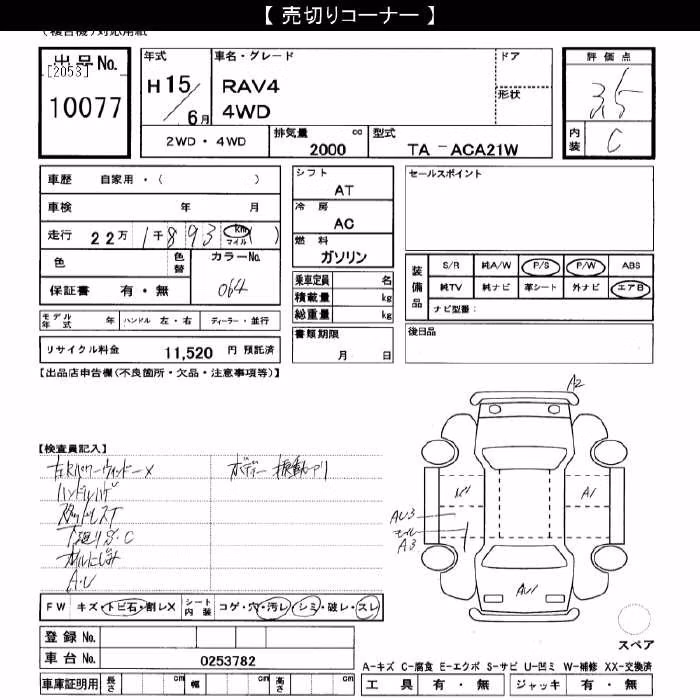 【 売切りコーナー 】
(複合機)対応用紙
出品No.
[2053]
10077
年式
H 15/6月
車名・グレード
RAV4
4WD
ドア
形状
評価点
3.5
内装
C
2WD・4WD
排気量 cc
2000
型式
TA － ACA21W
車歴 自家用・( )
車検 年 月
走行 22万 1千893 km マイル ( )
色 色替
カラーNo.
064
保証書 有・無
シフト
AT
冷房
AC
燃料
ガソリン
乗車定員 名
積載量 kg
総重量 kg
セールスポイント
装備品
S/R 純A/W P/S P/W ABS
純TV 純ナビ 革シート 外ナビ エアB
ナビ型番：
モデル年式 年 ハンドル 左・右 ディーラー・並行
書類期限
月 日
後日品
リサイクル料金 11,520 円 預託済
【出品店申告欄(不良箇所・欠品・注意事項等)】
A2
【検査員記入】
左Rパワーウィンドー×
ボディー振動アリ
ハンドルハゲ
下廻りS・C
オイルにじみ
A・U
A1
AU3
モール
A3
AU1
FW キズ・トビ石・割レX シート内装 コゲ・穴・汚レ・シミ・破レ・スレ
登録No.
車台No. 0253782
スペア
A-キズ C-腐食 E-エクボ S-サビ U-凹ミ W-補修 XX-交換済
車庫証明用 長さ cm 幅 cm 高さ cm
工具 有・無 ジャッキ 有・無